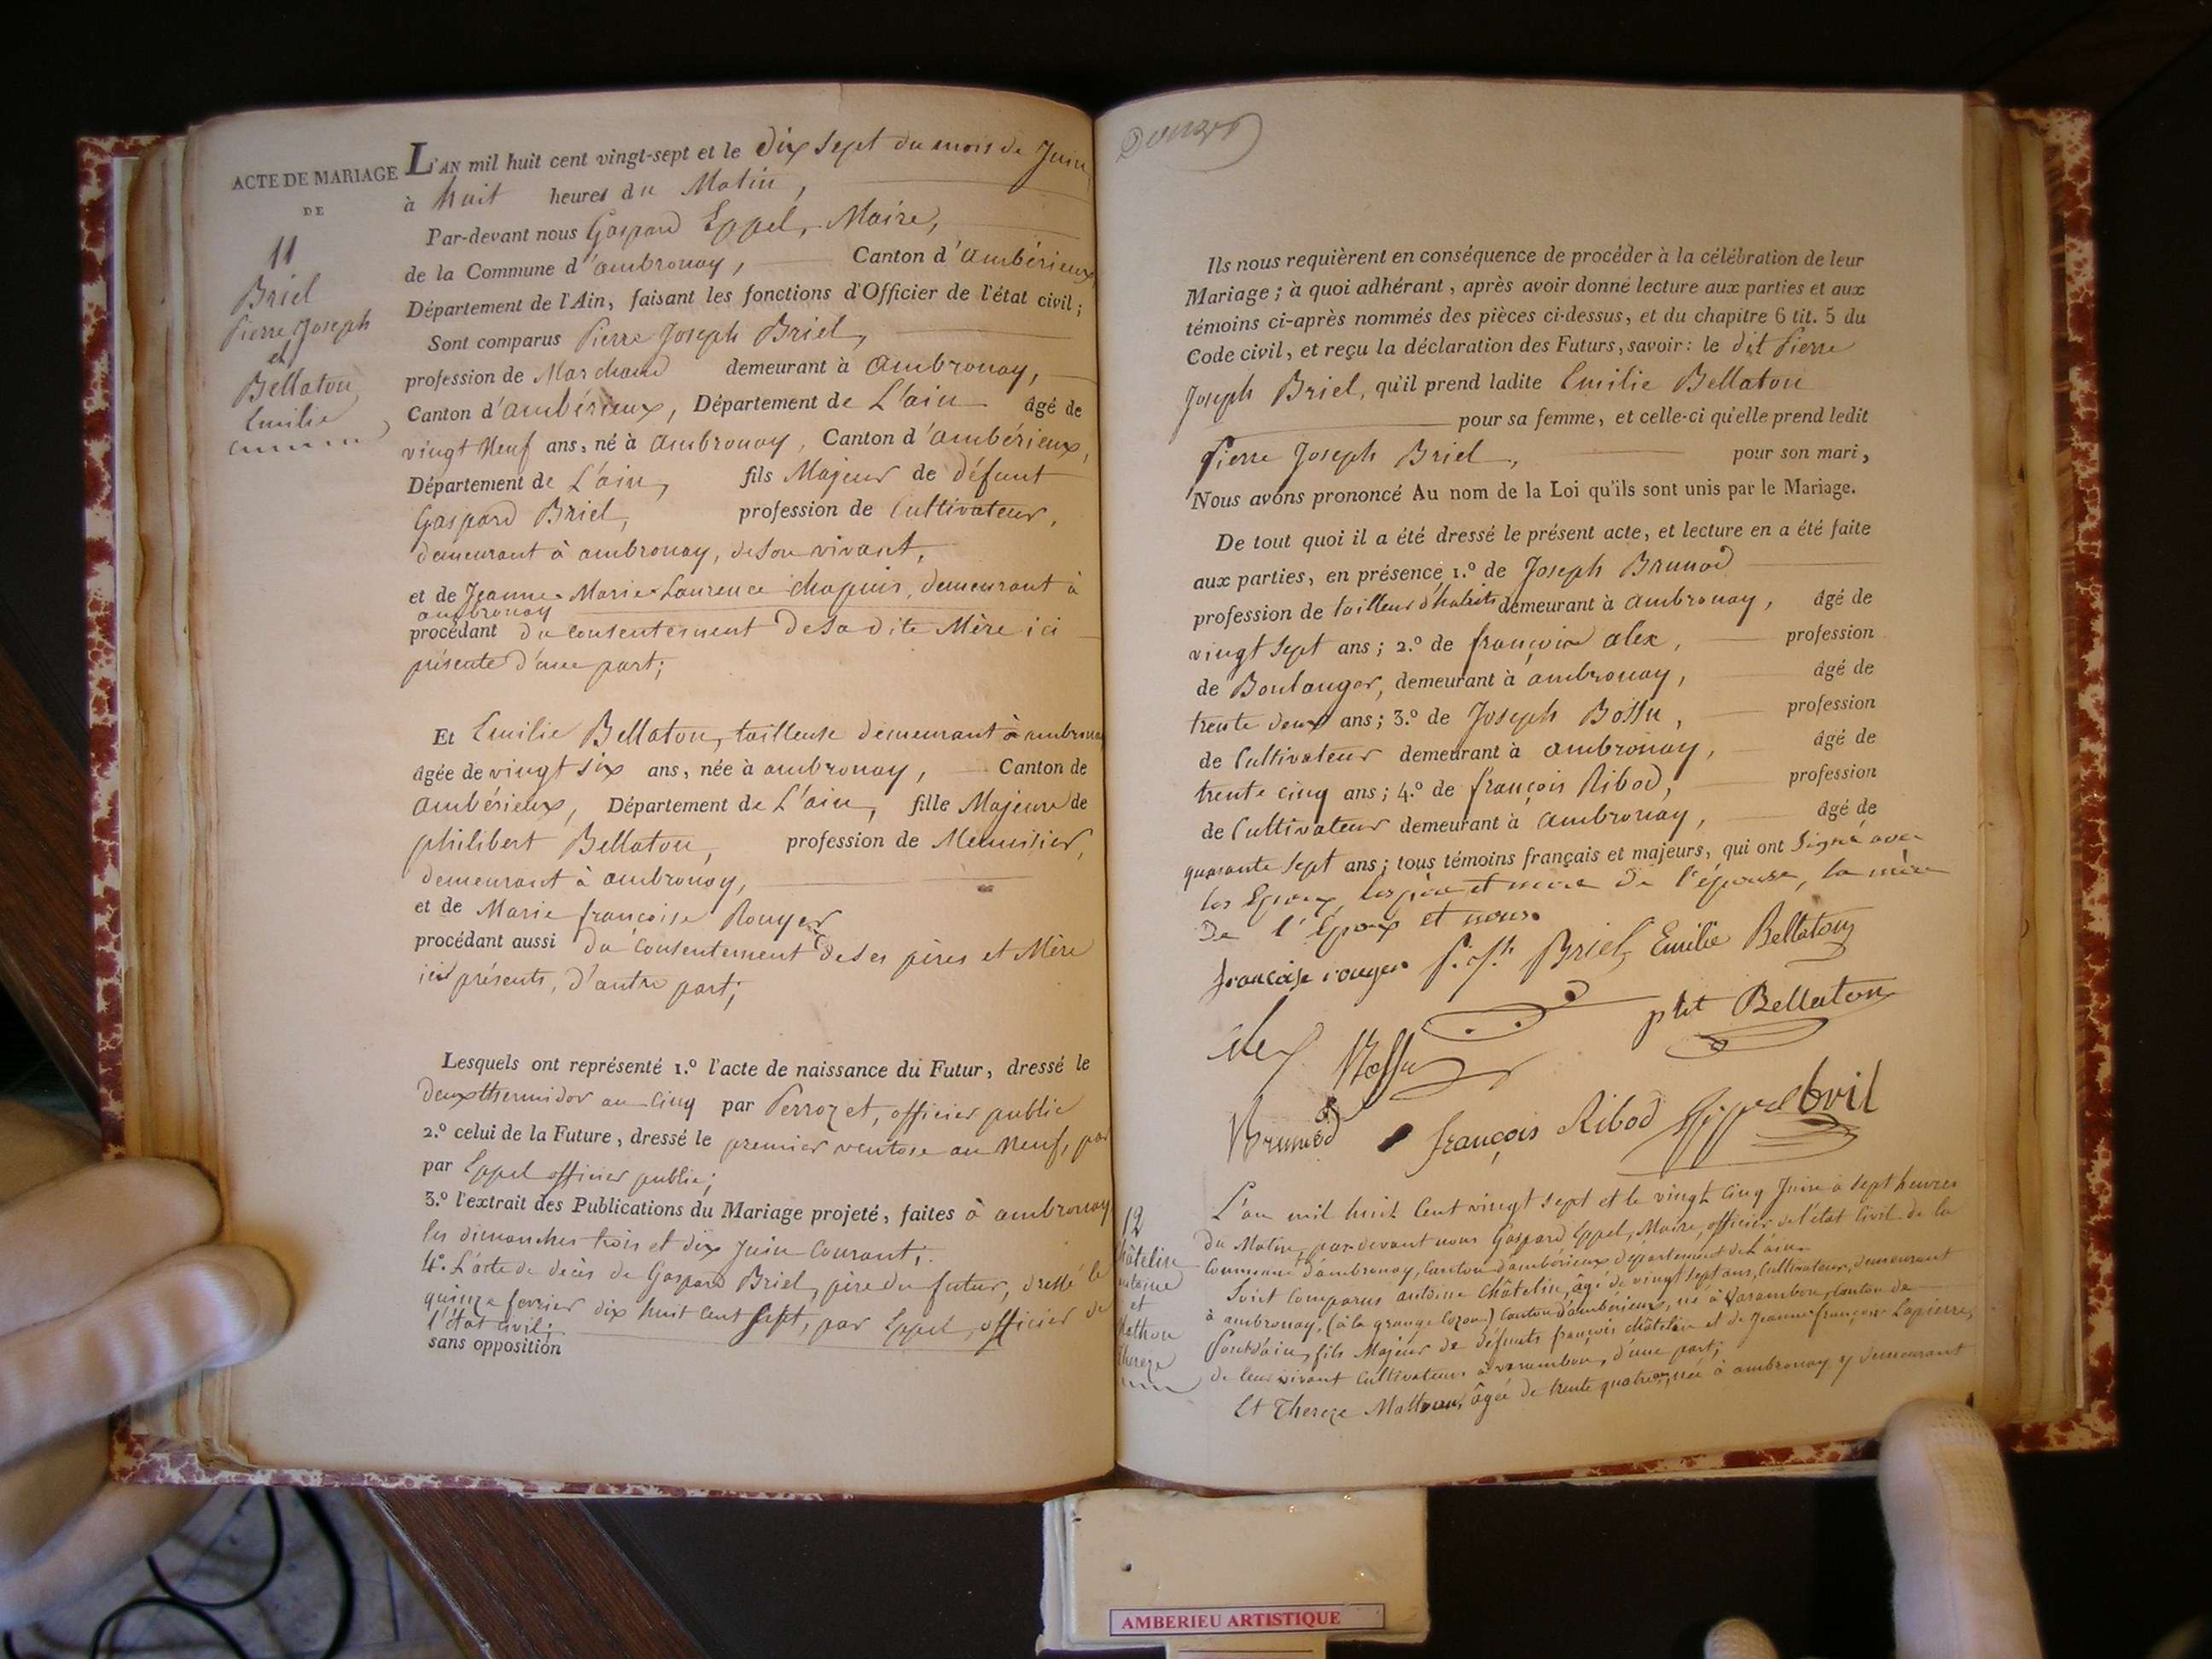 ACTE DE MARIAGE
DE
11
Briel
Pierre Joseph
et
Bellaton
Emilie
L'AN mil huit cent vingt-sept et le dix sept du mois de Juin
à huit heures du Matin,
Par-devant nous Gaspard Eppel, Maire,
de la Commune d'ambronay, Canton d'ambérieux,
Département de l'Ain, faisant les fonctions d'Officier de l'état civil;
Sont comparus Pierre Joseph Briel,
profession de Marchand demeurant à ambronay,
Canton d'ambérieux, Département de L'ain âgé de
vingt Neuf ans, né à ambronay, Canton d'ambérieux,
Département de L'ain, fils Majeur de défunt
Gaspard Briel, profession de Cultivateur,
demeurant à ambronay, de son vivant,
et de Jeanne-Marie-Laurence chapuis, demeurant à
ambronay
procédant du consentement de sa dite Mère ici
présente d'une part;
Et Emilie Bellaton, tailleuse demeurant à ambronay
âgée de vingt six ans, née à ambronay, Canton de
ambérieux, Département de L'ain, fille Majeure de
philibert Bellaton, profession de Menuisier,
demeurant à ambronay,
et de Marie françoise Rouyer
procédant aussi du consentement de ses pères et Mère
ici présents, d'autre part;
Lesquels ont représenté 1.º l'acte de naissance du Futur, dressé le
deux thermidor an cinq par Perrozet, officier public
2.º celui de la Future, dressé le premier ventose an Neuf, par
par Eppel officier public;
3.º l'extrait des Publications du Mariage projeté, faites à ambronay
les dimanches trois et dix Juin Courant;
4.º L'acte de décès de Gaspard Briel, père du futur, dressé le
quinze fevrier dix huit cent sept, par Eppel, officier de
l'état civil;
sans opposition
Ils nous requièrent en conséquence de procéder à la célébration de leur
Mariage; à quoi adhérant, après avoir donné lecture aux parties et aux
témoins ci-après nommés des pièces ci-dessus, et du chapitre 6 tit. 5 du
Code civil, et reçu la déclaration des Futurs, savoir: le dit Pierre
Joseph Briel, qu'il prend ladite Emilie Bellaton
pour sa femme, et celle-ci qu'elle prend ledit
Pierre Joseph Briel, pour son mari,
Nous avons prononcé Au nom de la Loi qu'ils sont unis par le Mariage.
De tout quoi il a été dressé le présent acte, et lecture en a été faite
aux parties, en présence 1.º de Joseph Brunod
profession de tailleur d'habits demeurant à ambronay, âgé de
vingt sept ans; 2.º de françois alex, profession
de Boulanger, demeurant à ambronay, âgé de
trente deux ans; 3.º de Joseph Bossu, profession
de Cultivateur demeurant à ambronay, âgé de
trente cinq ans; 4.º de françois Ribod, profession
de Cultivateur demeurant à ambronay, âgé de
quarante sept ans; tous témoins français et majeurs, qui ont signé avec
les Epoux, les père et mere de l'épouse, la mère
De l'Epoux et nous.
francoise rouyer P. Jh Briel Emilie Bellaton
alex Bossu pbt Bellaton
Brunod françois Ribod Eppel
12
Châtelin
antoine
et
Mathon
Thereze
L'an mil huit Cent vingt sept et le vingt cinq Juin à sept heures
du Matin, par-devant nous Gaspard Eppel, Maire, officier de l'état Civil de la
Commune d'ambronay, Canton d'ambérieux département de L'ain.
Sont Comparus antoine Châtelin, âgé de vingt sept ans, Cultivateur, demeurant
à ambronay, (à la grange) Canton d'ambérieux, né à Varambon, Canton de
Pontd'ain, fils Majeur de défunts françois châtelin et de Jeanne françoise Lapierre,
de leur vivant Cultivateurs à varambon, d'une part;
Et Thereze Mathon, âgée de trente quatre ans, née à ambronay y demeurant
AMBERIEU ARTISTIQUE